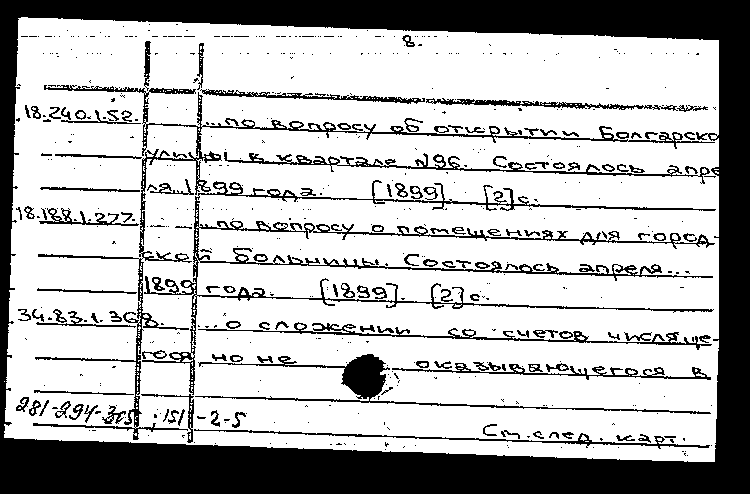 8.
18.240.1.52. ...по вопросу об открытии Болгарско
улицы в квартале №96. Состоялось апре
ля 1899 года. [1899]. [2] с.
18.188.1.277. ...по вопросу о помещениях для город-
ской больницы. Состоялось апреля...
1899 года. [1899]. [2] с.
34.83.1.368. ...о сложении со счетов числяще-
гося но не оказывающегося в
281-294-305 ; 151 -2-5
См. след. карт.